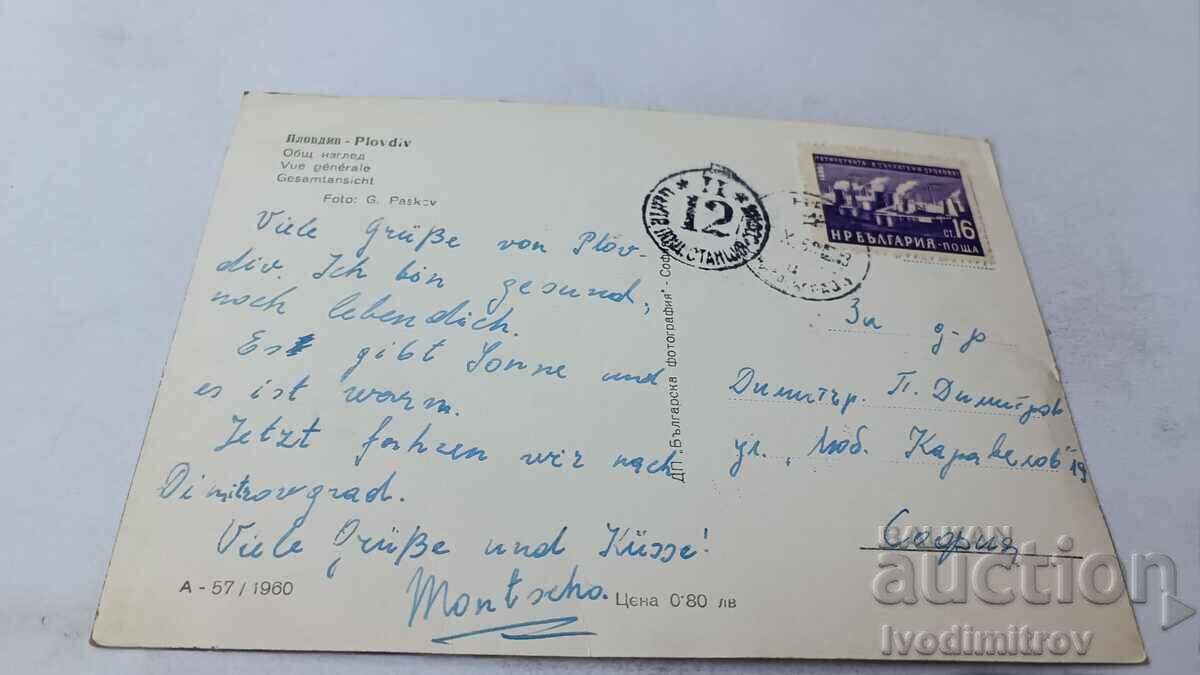 Пловдив - Plovdiv
Общ изглед
Vue générale
Gesamtansicht
Foto: G. Paskov
Viele Grüße von Plov-
div. Ich bin gesund,
noch lebendich.
Es gibt Sonne und
es ist warm.
Jetzt fahren wir nach
Dimitrovgrad.
Viele Grüße und Küsse!
Montscho.
А - 57 / 1960
Цена 0·80 лв
ДП „Българска фотография“ - Софи
II
12
ПЕТИЛЕТКАТА В СЪКРАТЕНИ СРОКОВЕ
СТ. 16
НР БЪЛГАРИЯ · ПОЩА
За д-р
Димитър П. Димитров
ул. „Люб. Каравелов" 19
София
BALKAN
auction
Ivodimitrov